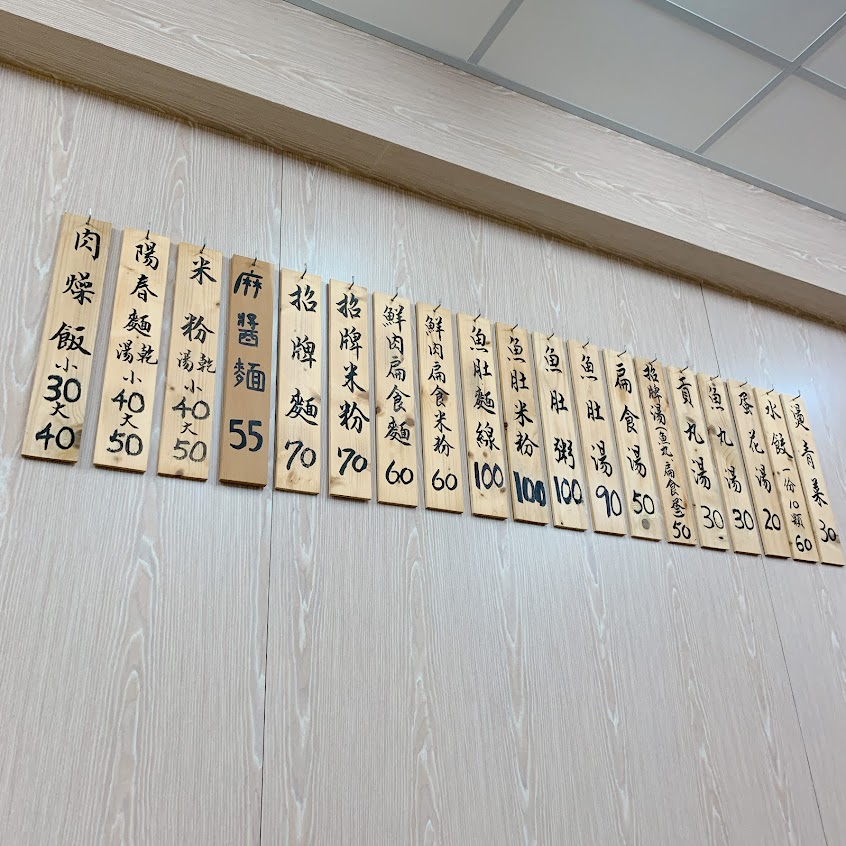 肉燥飯小30大40
陽春麵湯乾小40大50
米粉湯乾小40大50
麻醬麵55
招牌麵70
招牌米粉70
鮮肉扁食麵60
鮮肉扁食米粉60
魚肚麵線100
魚肚米粉100
魚肚粥100
魚肚湯90
扁食湯50
招牌湯(魚丸扁食蛋)50
貢丸湯30
魚丸湯30
蛋花湯20
水餃一份10顆60
燙青菜30